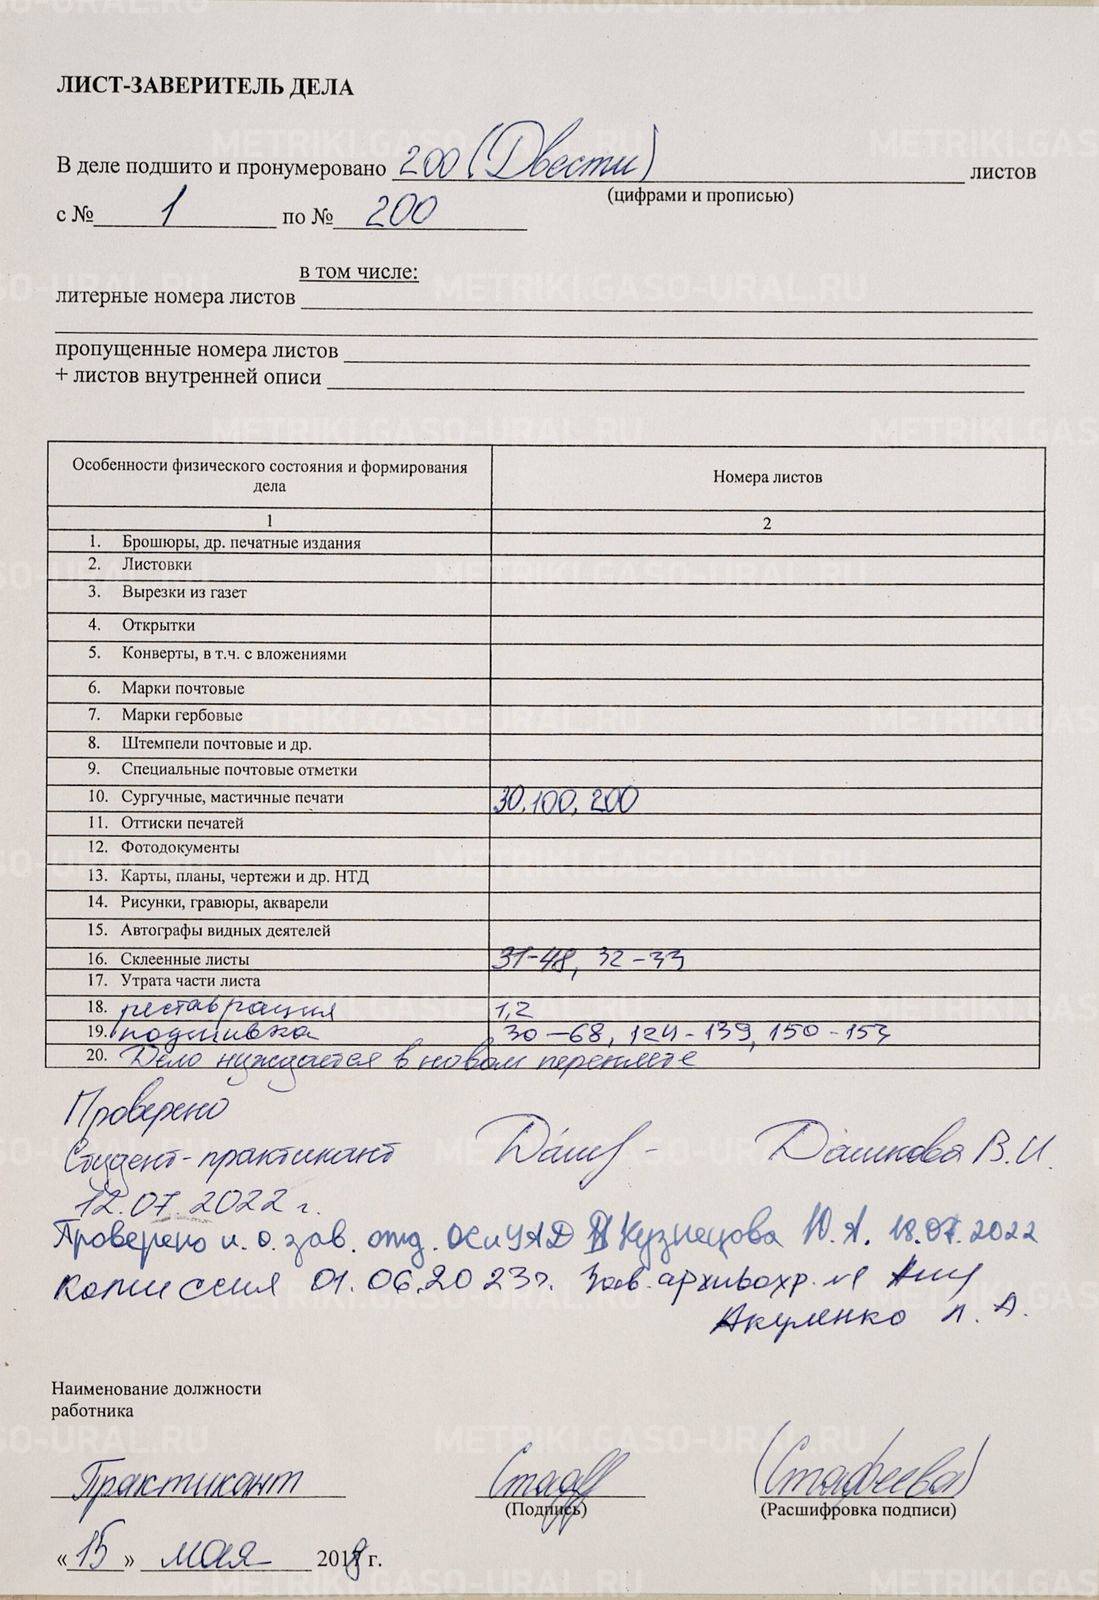 ЛИСТ-ЗАВЕРИТЕЛЬ ДЕЛА
В деле подшито и пронумеровано 200 (Двести) листов
(цифрами и прописью)
с № 1 по № 200
в том числе:
литерные номера листов
пропущенные номера листов
+ листов внутренней описи
Особенности физического состояния и формирования дела
Номера листов
1 2
1. Брошюры, др. печатные издания
2. Листовки
3. Вырезки из газет
4. Открытки
5. Конверты, в т.ч. с вложениями
6. Марки почтовые
7. Марки гербовые
8. Штемпели почтовые и др.
9. Специальные почтовые отметки
10. Сургучные, мастичные печати 30, 100, 200
11. Оттиски печатей
12. Фотодокументы
13. Карты, планы, чертежи и др. НТД
14. Рисунки, гравюры, акварели
15. Автографы видных деятелей
16. Склеенные листы 31-48, 32-33
17. Утрата части листа
18. реставрация 1,2
19. подшивка 30-68, 124-139, 150-153
20. Дело нуждается в новом переплете
Проверено
Студент-практикант Дашкова В.И.
12.07.2022 г.
Проверено и.о. зав. отд. ОСиУАД Кузнецова Ю.А. 18.07.2022
Комиссия 01.06.2023г. Зав. архивохр. №1
Акуленко Л.А.
Наименование должности
работника
Практикант (Стафеева)
(Подпись) (Расшифровка подписи)
«15» мая 2018 г.
METRIKI.GASO-URAL.RU